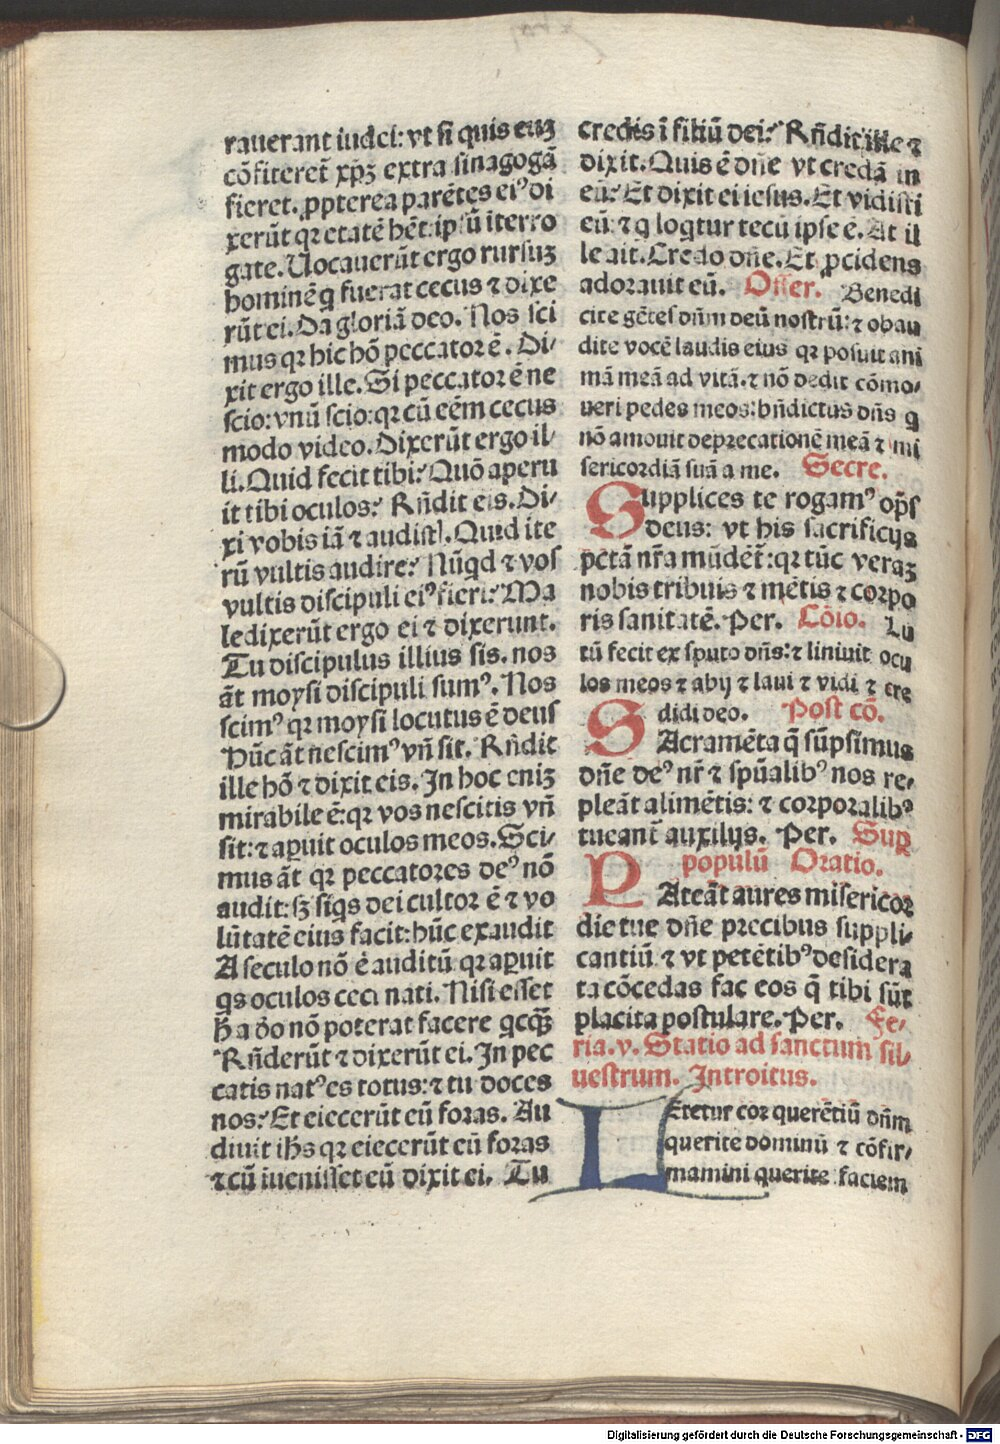 rauerant iudei: vt si quis euꝫ
cõfiteret̃ xp̃ꝫ extra sinagogã
fieret. ꝓpterea parẽtes ei⁹ di
xerũt qꝛ etatẽ hẽt: ip̃ũ iterro
gate. Uocauerũt ergo rursuꝫ
hominẽ q̃ fuerat cecus ⁊ dixe
rũt ei. Da gloriã deo. Nos sci
mus qꝛ hic hõ peccator ẽ. Di/
xit ergo ille. Si peccator ẽ ne
scio: vnũ scio: qꝛ cũ eẽm cecus
modo video. Dixerũt ergo il/
li. Quid fecit tibi? Quõ aperu
it tibi oculos? Rñdit eis. Di/
xi vobis iã ⁊ audistꝭ. Quid ite
rũ vultis audire? Nũqd ⁊ vos
vultis discipuli ei⁹ fieri? Ma
ledixerũt ergo ei ⁊ dixerunt.
Tu discipulus illius sis. nos
ãt moysi discipuli sum⁹. Nos
scim⁹ qꝛ moysi locutus ẽ deus
Hũc ãt nescim⁹ vñ sit. Rñdit
ille hõ ⁊ dixit eis. In hoc eniꝫ
mirabile ẽ: qꝛ vos nescitis vñ
sit: ⁊ aꝑuit oculos meos. Sci/
mus ãt qꝛ peccatores de⁹ nõ
audit: sꝫ siq̃s dei cultor ẽ ⁊ vo
lũtatẽ eius facit: hũc exaudit
A seculo nõ ẽ auditũ qꝛ aꝑuit
qs oculos ceci nati. Nisi esset
h̃ a deo nõ poterat facere qcq̃ꝫ
Rñderũt ⁊ dixerũt ei. In pec
catis nat⁹ es totus: ⁊ tu doces
nos? Et eiecerũt eũ foras. Au
diuit ih̃s qꝛ eiecerũt eũ foras
⁊ cũ iuenisset eũ dixit ei. Tu
credis ĩ filiũ dei? Rñdit ille ⁊
dixit. Quis ẽ dñe vt credã in
eũ? Et dixit ei iesus. Et vidisti
eũ: ⁊ q loqtur tecũ ipse ẽ. At il
le ait. Credo dñe. Et ꝓcidens
adorauit eũ. Offer. Benedi
cite gẽtes dñm deũ nostrũ: ⁊ obau
dite vocẽ laudis eius qꝛ posuit ani
mã meã ad vitã. ⁊ nõ dedit cõmo/
ueri pedes meos: bñdictus dñs q
nõ amouit deprecationẽ meã ⁊ mi
sericordiã suã a me. Secre.
Supplices te rogam⁹ op̃s
deus: vt his sacrificijs
pctã nr̃a mũdẽt̃: qꝛ tũc veraꝫ
nobis tribuis ⁊ mẽtis ⁊ corpo
ris sanitatẽ. Per. Cõio. Lu
tũ fecit ex sputo dñs: ⁊ liniuit ocu
los meos ⁊ abij ⁊ laui ⁊ vidi ⁊ cre
didi deo. Post cõ.
SAcramẽta q̃ sũpsimus
dñe de⁹ nr̃ ⁊ spũalib⁹ nos re/
pleãt alimẽtis: ⁊ corporalib⁹
tueant̃ auxilijs. Per. Suꝑ
populũ Oratio.
PAteãt aures misericor
die tue dñe precibus suppli/
cantiũ ⁊ vt petẽtib⁹ desidera
ta cõcedas fac eos q̃ tibi sũt
placita postulare. Per. Fe/
ria. v. Statio ad sanctum sil/
uestrum. Introitus.
LEtetur cor querẽtiũ dñm
querite dominũ ⁊ cõfir/
mamini querite faciem
Digitalisierung gefördert durch die Deutsche Forschungsgemeinschaft - DFG